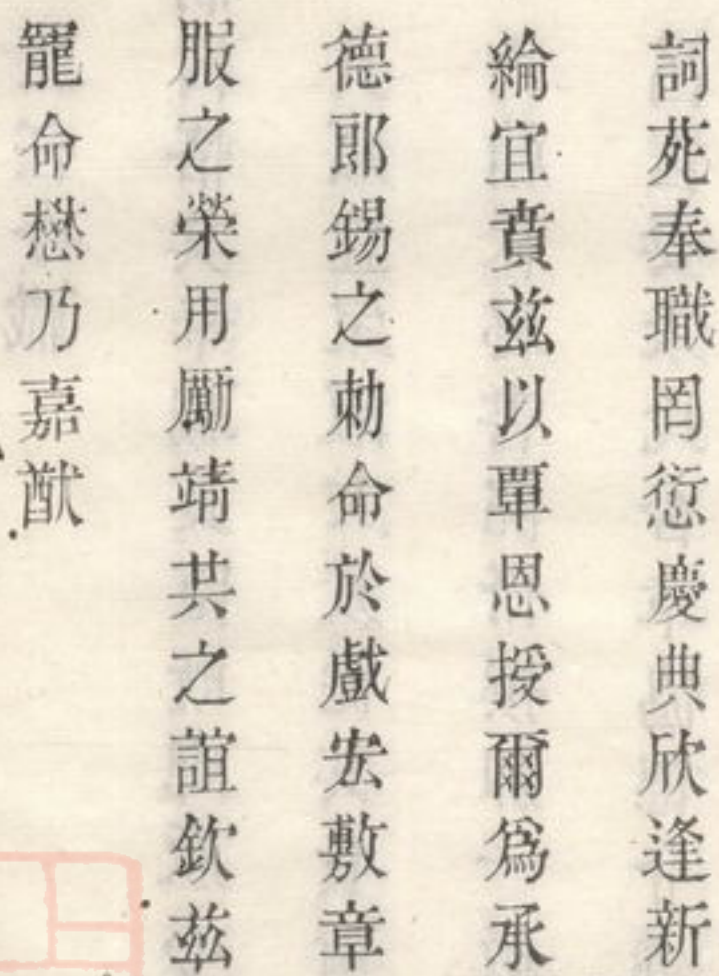 詞苑奉職罔愆慶典欣逢新
綸宜賁兹以覃恩授爾爲承
德郎錫之勅命於戲宏敷章
服之榮用勵靖共之誼欽兹
寵命懋乃嘉猷